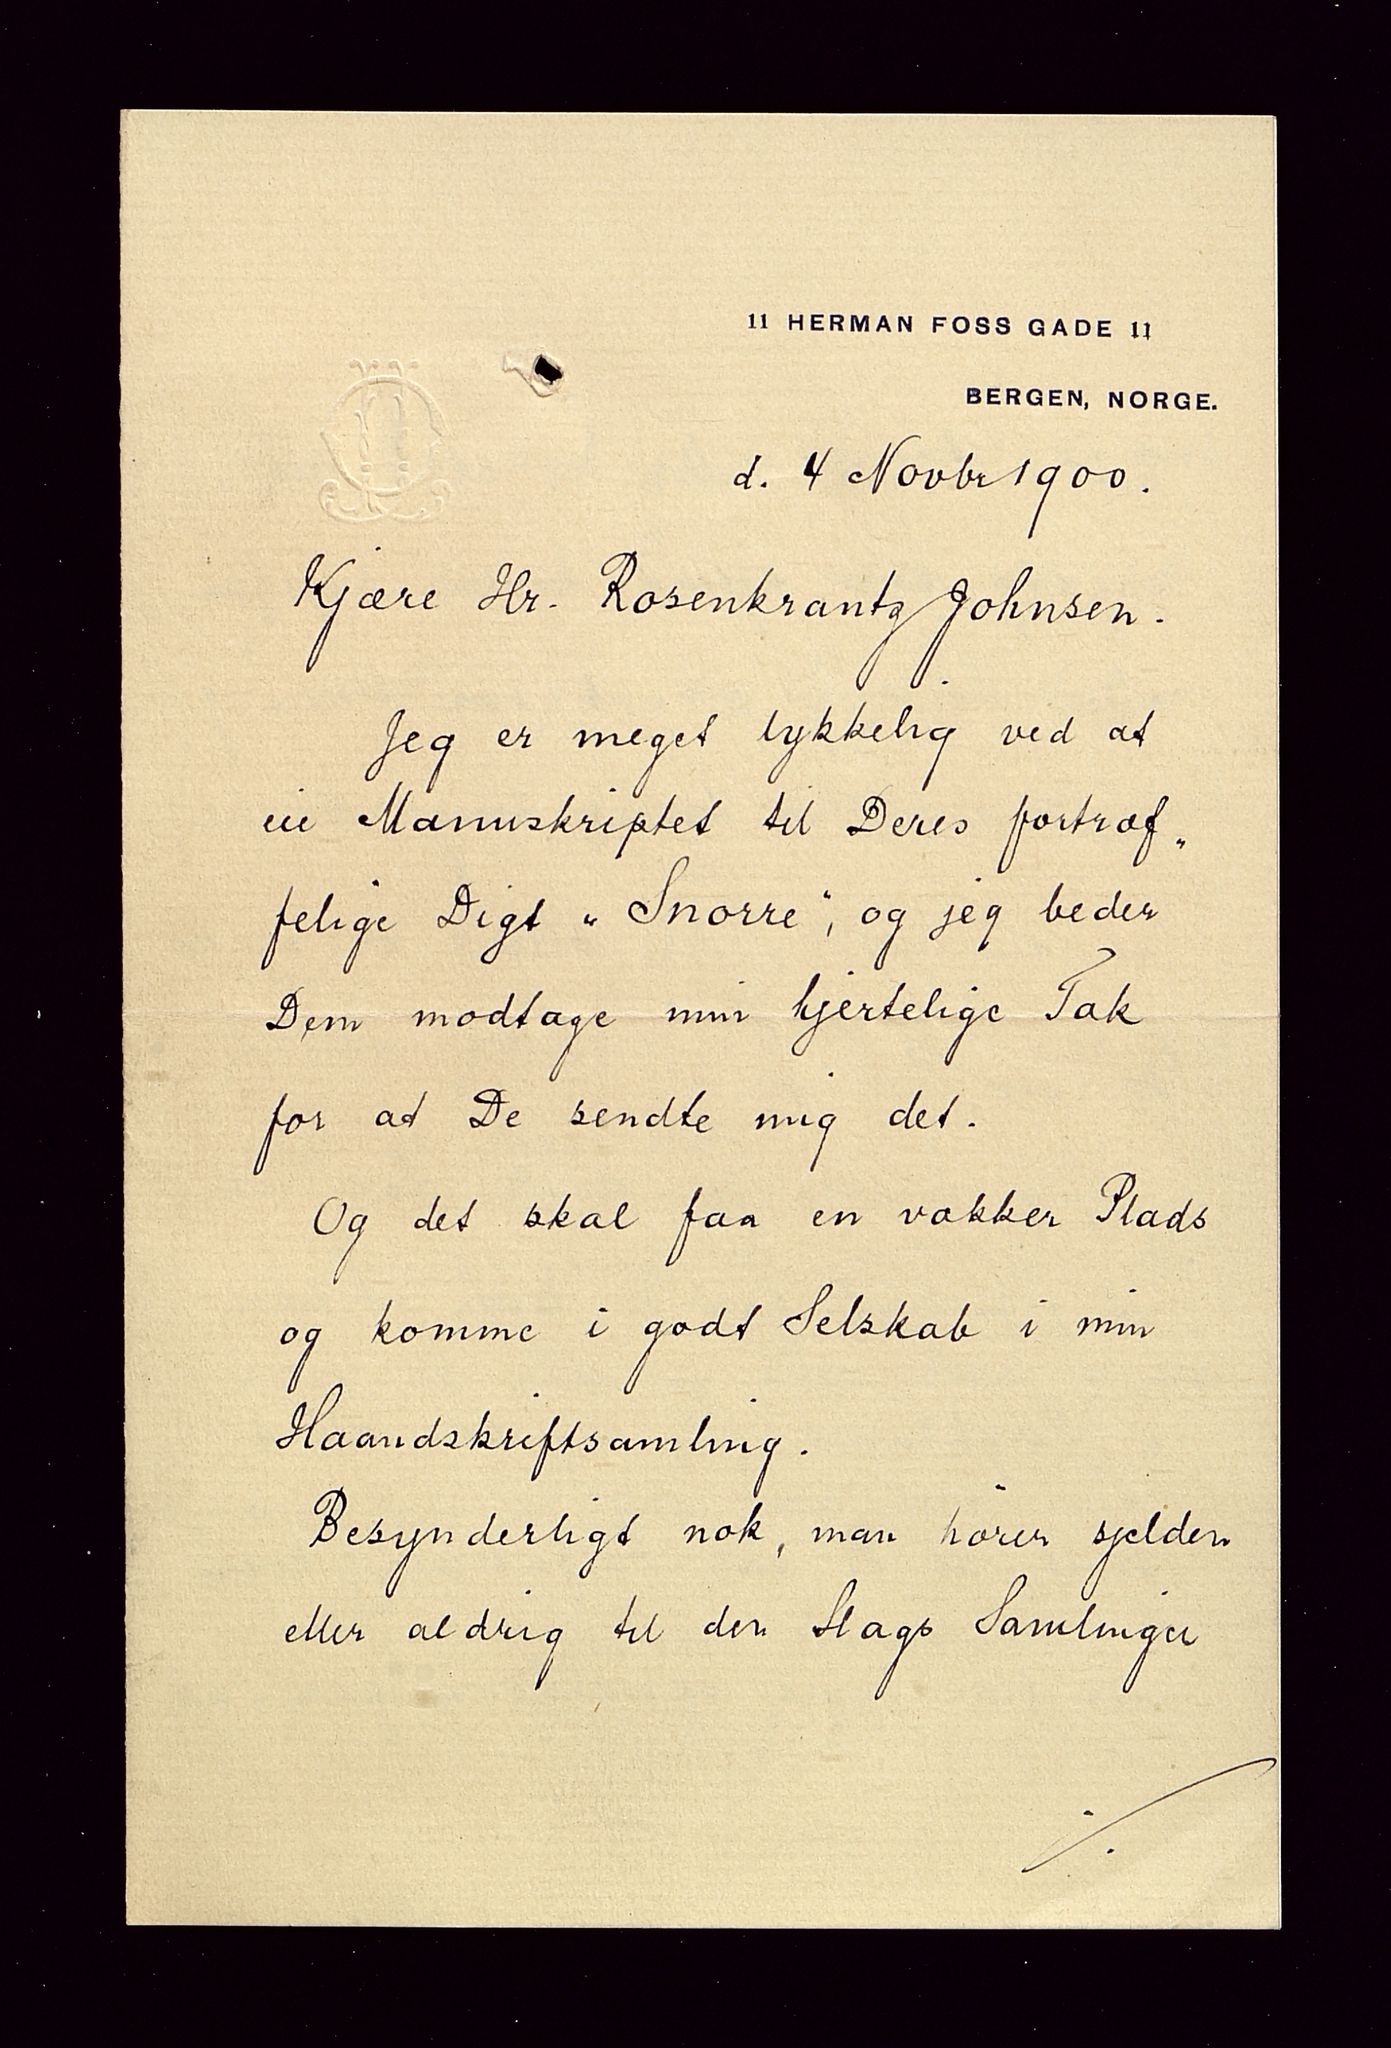 11 HERMAN FOSS GADE 11
BERGEN, NORGE.
d. 4 Novbr 1900.
Kjære Hr. Rosenkrantz Johnsen.
Jeg er meget lykkelig ved at
eie Manuskriptet til Deres fortræf„
felige Digt „Snorre“, og jeg beder
Dem modtage min hjertelige Tak
for at De sendte mig det.
Og det skal faa en vakker Plads
og komme i godt Selskab i min
Haandskriftsamling.
Besynderligt nok, man hører sjelden
eller aldrig til den Slags Samlinger
./.